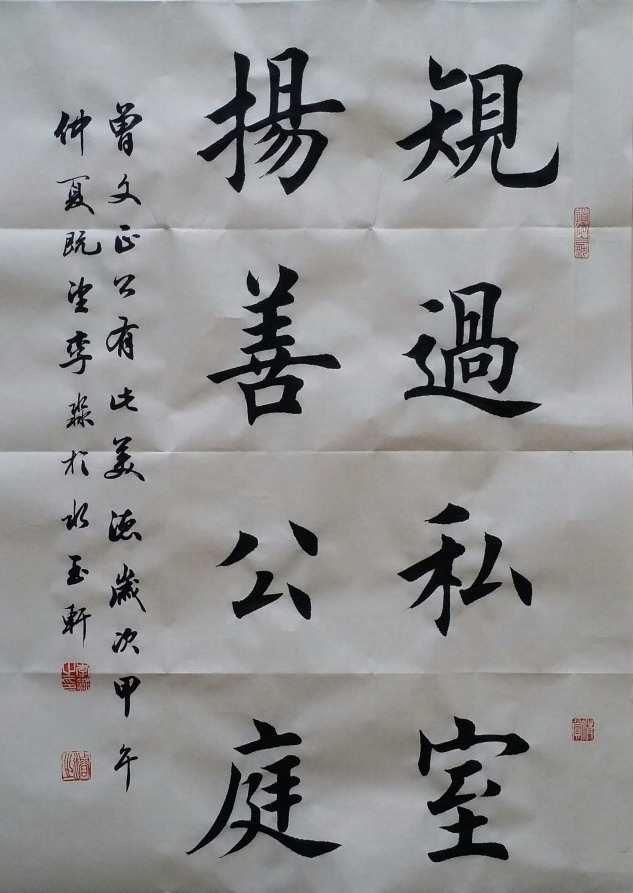 規過私室
揚善公庭
曾文正公有此美德歲次甲午
仲夏既望李淼於水玉軒